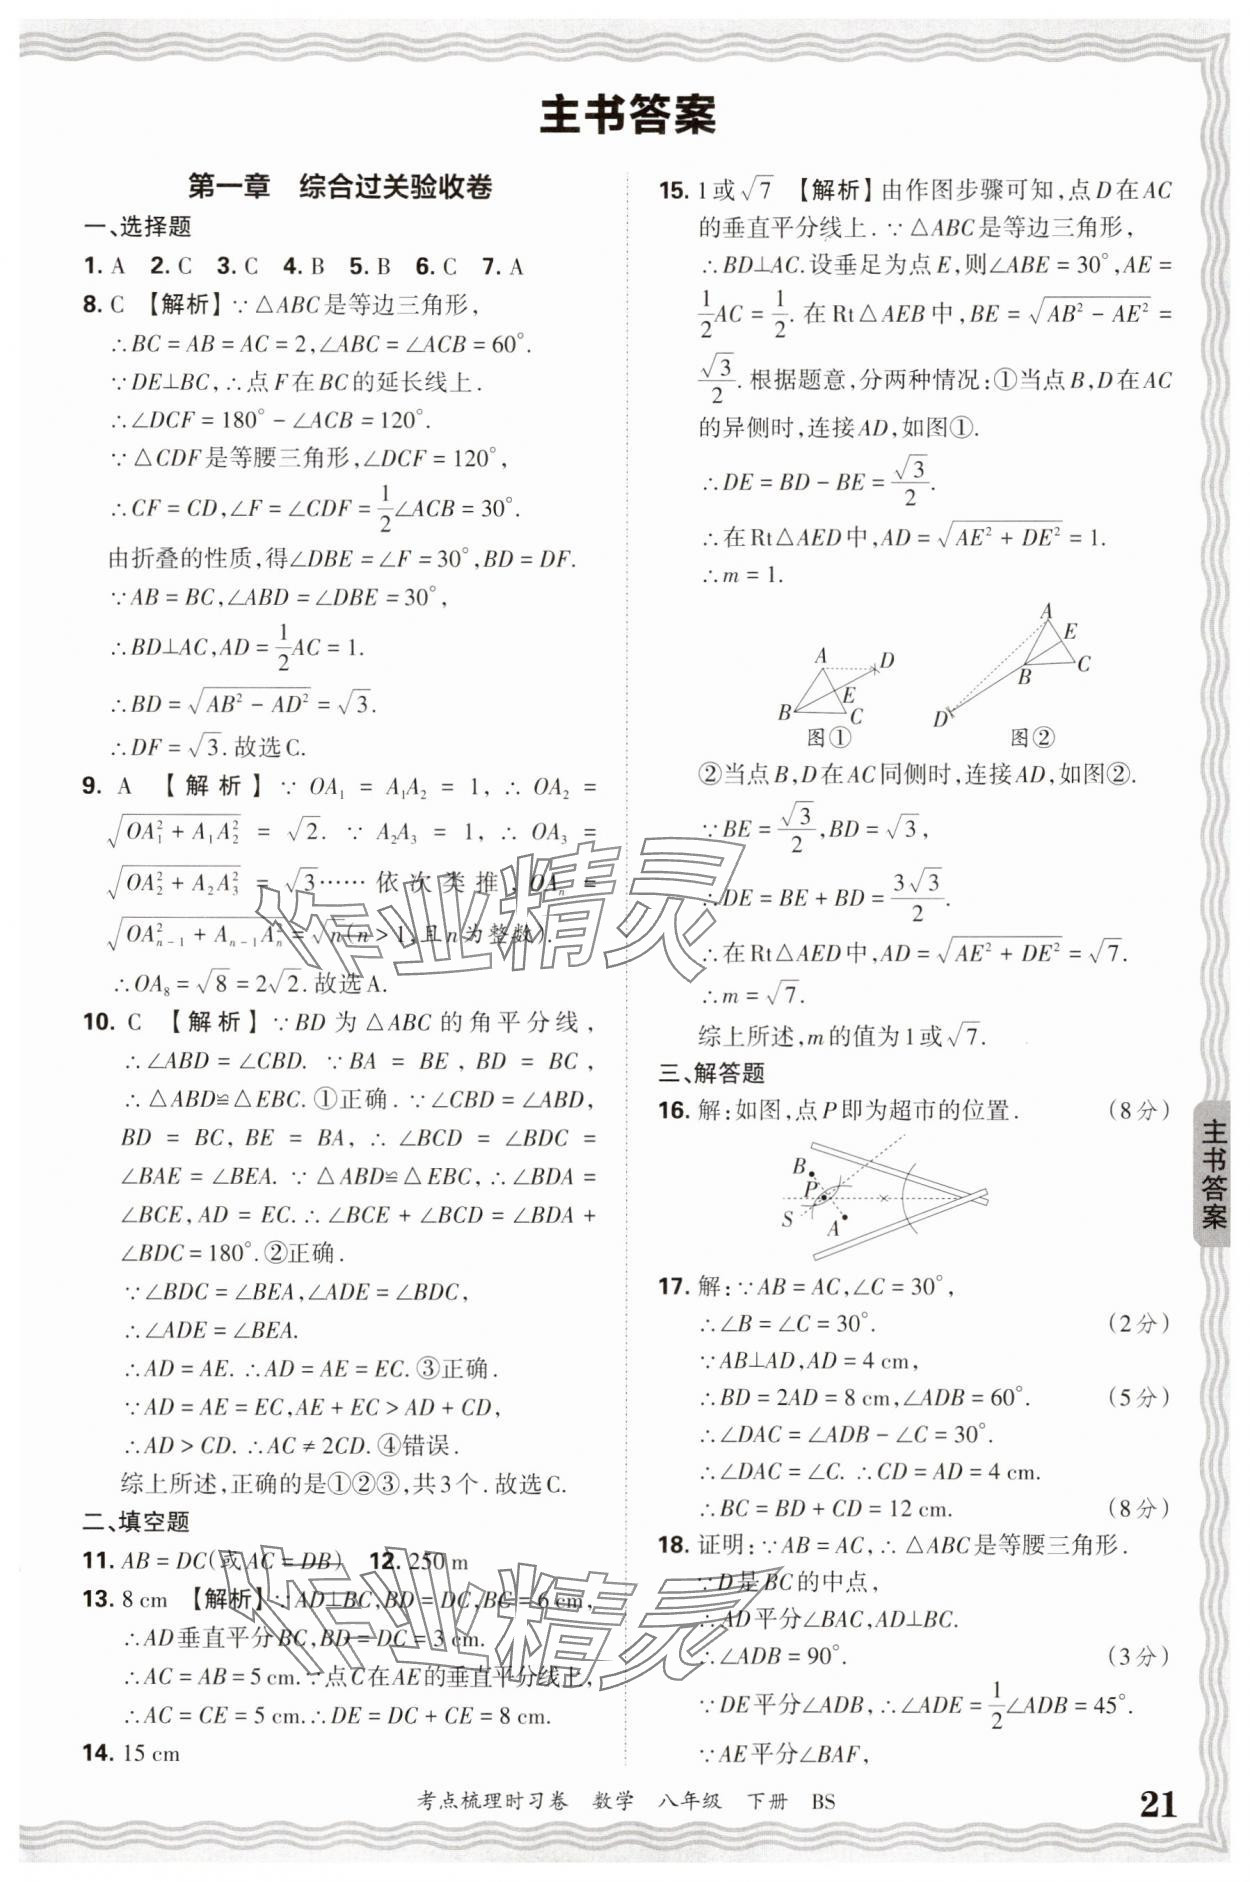 主书答案
第一章　综合过关验收卷
一、选择题
1. A　2. C　3. C　4. B　5. B　6. C　7. A
8. C　【解析】∵△ABC是等边三角形,
∴BC = AB = AC = 2,∠ABC = ∠ACB = 60°.
∵DE⊥BC,∴点F在BC的延长线上.
∴∠DCF = 180° - ∠ACB = 120°.
∵△CDF是等腰三角形,∠DCF = 120°,
∴CF = CD,∠F = ∠CDF = 1/2∠ACB = 30°.
由折叠的性质,得∠DBE = ∠F = 30°,BD = DF.
∵AB = BC,∠ABD = ∠DBE = 30°,
∴BD⊥AC,AD = 1/2AC = 1.
∴BD = √(AB² - AD²) = √3.
∴DF = √3.故选C.
9. A　【解析】∵OA₁ = A₁A₂ = 1,∴OA₂ =
√(OA₁² + A₁A₂²) = √2. ∵A₂A₃ = 1,∴OA₃ =
√(OA₂² + A₂A₃²) = √3……依次类推,OAₙ =
√(OAₙ₋₁² + Aₙ₋₁Aₙ²) = √n(n > 1,且n为整数).
∴OA₈ = √8 = 2√2.故选A.
10. C　【解析】∵BD为△ABC的角平分线,
∴∠ABD = ∠CBD. ∵BA = BE,BD = BC,
∴△ABD≌△EBC.①正确.∵∠CBD = ∠ABD,
BD = BC,BE = BA,∴∠BCD = ∠BDC =
∠BAE = ∠BEA. ∵△ABD≌△EBC,∴∠BDA =
∠BCE,AD = EC.∴∠BCE + ∠BCD = ∠BDA +
∠BDC = 180°.②正确.
∵∠BDC = ∠BEA,∠ADE = ∠BDC,
∴∠ADE = ∠BEA.
∴AD = AE.∴AD = AE = EC.③正确.
∵AD = AE = EC,AE + EC > AD + CD,
∴AD > CD.∴AC ≠ 2CD.④错误.
综上所述,正确的是①②③,共3个.故选C.
二、填空题
11. AB = DC(或AC = DB)　12. 250 m
13. 8 cm　【解析】∵AD⊥BC,BD = DC,BC = 6 cm,
∴AD垂直平分BC,BD = DC = 3 cm.
∴AC = AB = 5 cm.∵点C在AE的垂直平分线上,
∴AC = CE = 5 cm.∴DE = DC + CE = 8 cm.
14. 15 cm
15. 1或√7　【解析】由作图步骤可知,点D在AC
的垂直平分线上.∵△ABC是等边三角形,
∴BD⊥AC.设垂足为点E,则∠ABE = 30°,AE =
1/2AC = 1/2.在Rt△AEB中,BE = √(AB² - AE²) =
√3/2.根据题意,分两种情况:①当点B,D在AC
的异侧时,连接AD,如图①.
∴DE = BD - BE = √3/2.
∴在Rt△AED中,AD = √(AE² + DE²) = 1.
∴m = 1.
A
D
E
B
C
图①
A
E
C
B
D
图②
②当点B,D在AC同侧时,连接AD,如图②.
∵BE = √3/2,BD = √3,
∴DE = BE + BD = 3√3/2.
∴在Rt△AED中,AD = √(AE² + DE²) = √7.
∴m = √7.
综上所述,m的值为1或√7.
三、解答题
16. 解:如图,点P即为超市的位置.　(8分)
B
P
S
A
17. 解:∵AB = AC,∠C = 30°,
∴∠B = ∠C = 30°.　(2分)
∵AB⊥AD,AD = 4 cm,
∴BD = 2AD = 8 cm,∠ADB = 60°.　(5分)
∴∠DAC = ∠ADB - ∠C = 30°.
∴∠DAC = ∠C.∴CD = AD = 4 cm.
∴BC = BD + CD = 12 cm.　(8分)
18. 证明:∵AB = AC,∴△ABC是等腰三角形.
∵D是BC的中点,
∴AD平分∠BAC,AD⊥BC.
∴∠ADB = 90°.　(3分)
∵DE平分∠ADB,∴∠ADE = 1/2∠ADB = 45°.
∵AE平分∠BAF,
主书答案
作业精灵
作业精灵
考点梳理时习卷　数学　八年级　下册　BS
21